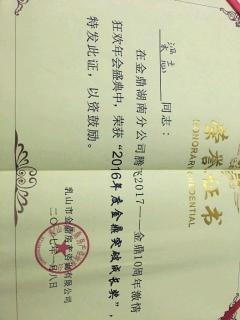 荣誉证书
HONORARY CREDENTIAL
同志：
在金鼎湖南分公司腾飞2017——金鼎10周年激情
狂欢年会盛典中，荣获“2016年度金鼎突破成长奖”，
特发此证，以资鼓励。
乳山市金鼎房产咨询有限公司